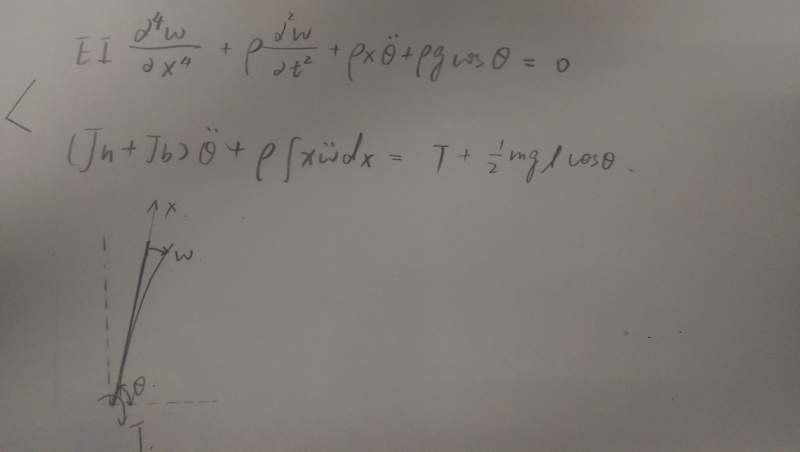 EI ∂⁴w/∂x⁴ + ρ ∂²w/∂t² + ρxθ̈ + ρg cosθ = 0
(Jh + Jb) θ̈ + ρ∫xẅdx = T + ½mgl cosθ.
x.
w.
θ.
T.